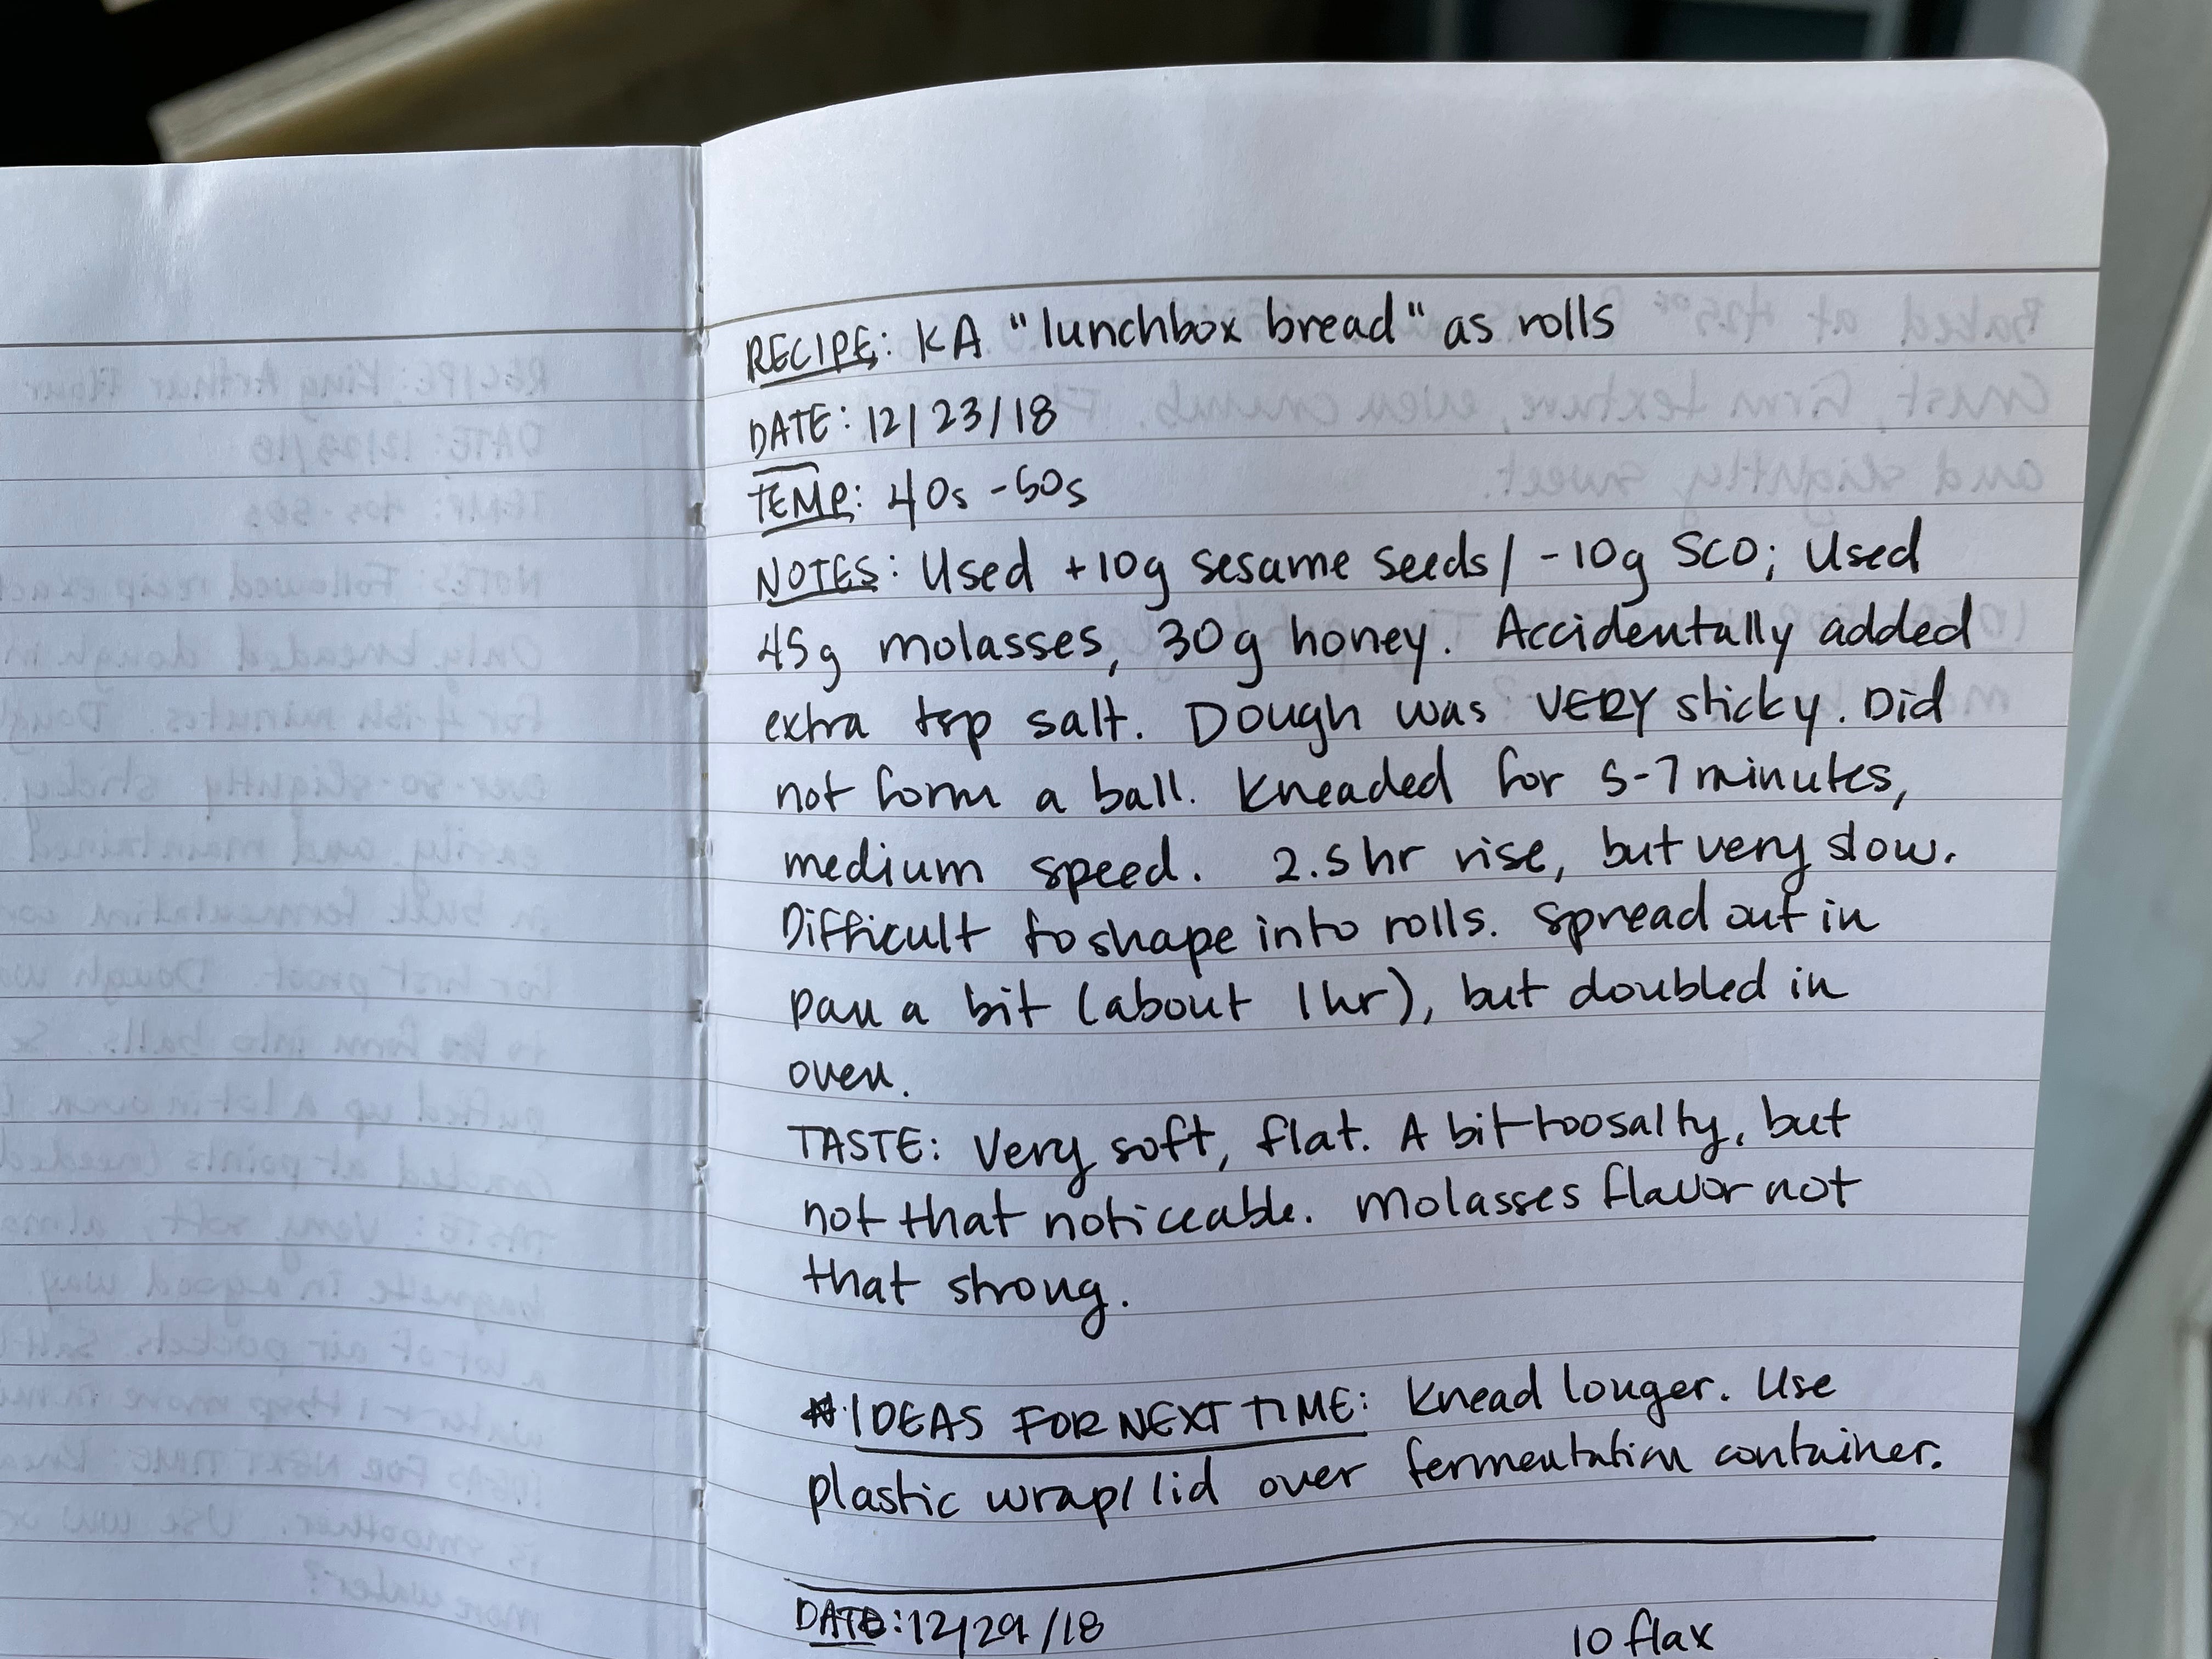 RECIPE: KA "lunchbox bread" as rolls
DATE: 12/23/18
TEMP: 40s -50s
NOTES: Used +10g sesame seeds/ -10g SCO; Used
45g molasses, 30g honey. Accidentally added
extra tsp salt. Dough was VERY sticky. Did
not form a ball. Kneaded for 5-7 minutes,
medium speed. 2.5hr rise, but very slow.
Difficult to shape into rolls. Spread out in
pan a bit (about 1hr), but doubled in
oven.
TASTE: Very soft, flat. A bit too salty, but
not that noticeable. Molasses flavor not
that strong.
*IDEAS FOR NEXT TIME: Knead longer. Use
plastic wrap/lid over fermentation container.
DATE: 12/29/18
10 flax